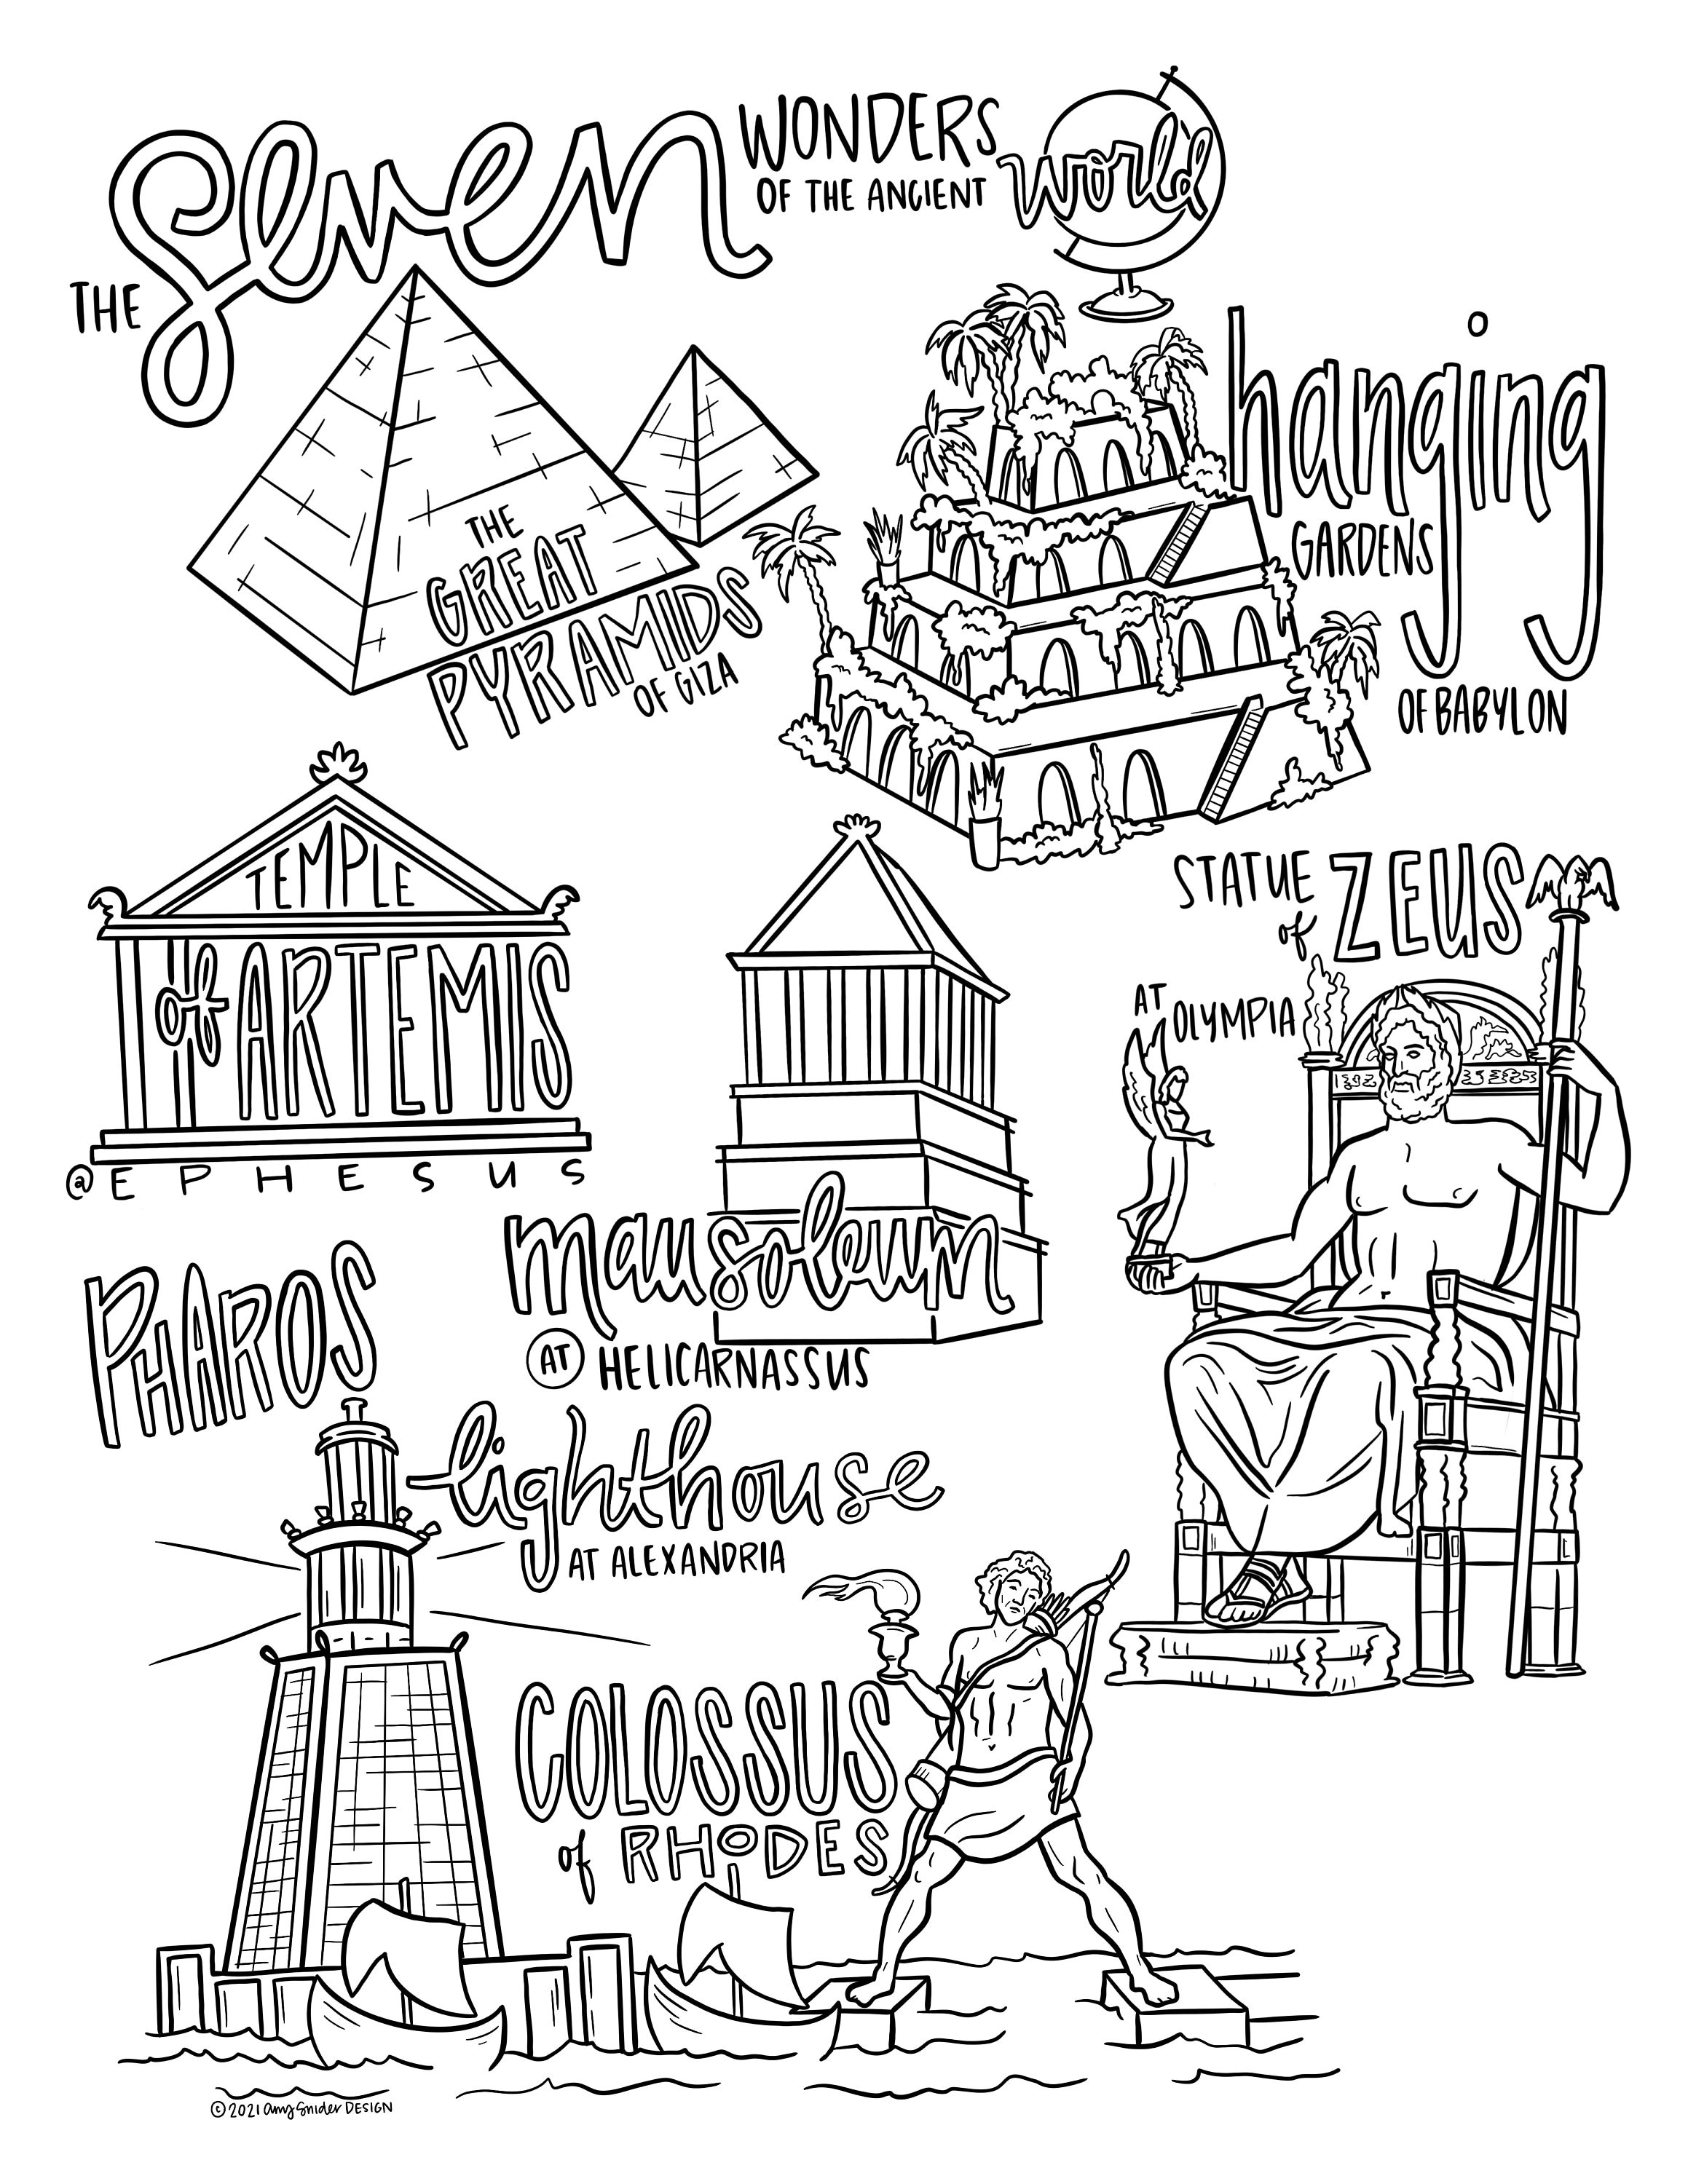 THE Seven WONDERS
OF THE ANCIENT world
THE
GREAT
PYRAMIDS
OF GIZA
hanging
GARDENS
OF BABYLON
TEMPLE
of ARTEMIS
@EPHESUS
STATUE
of ZEUS
AT OLYMPIA
mausoleum
AT HELICARNASSUS
PHAROS
lighthouse
AT ALEXANDRIA
COLOSSUS
of RHODES
©2021 amy Snider DESIGN